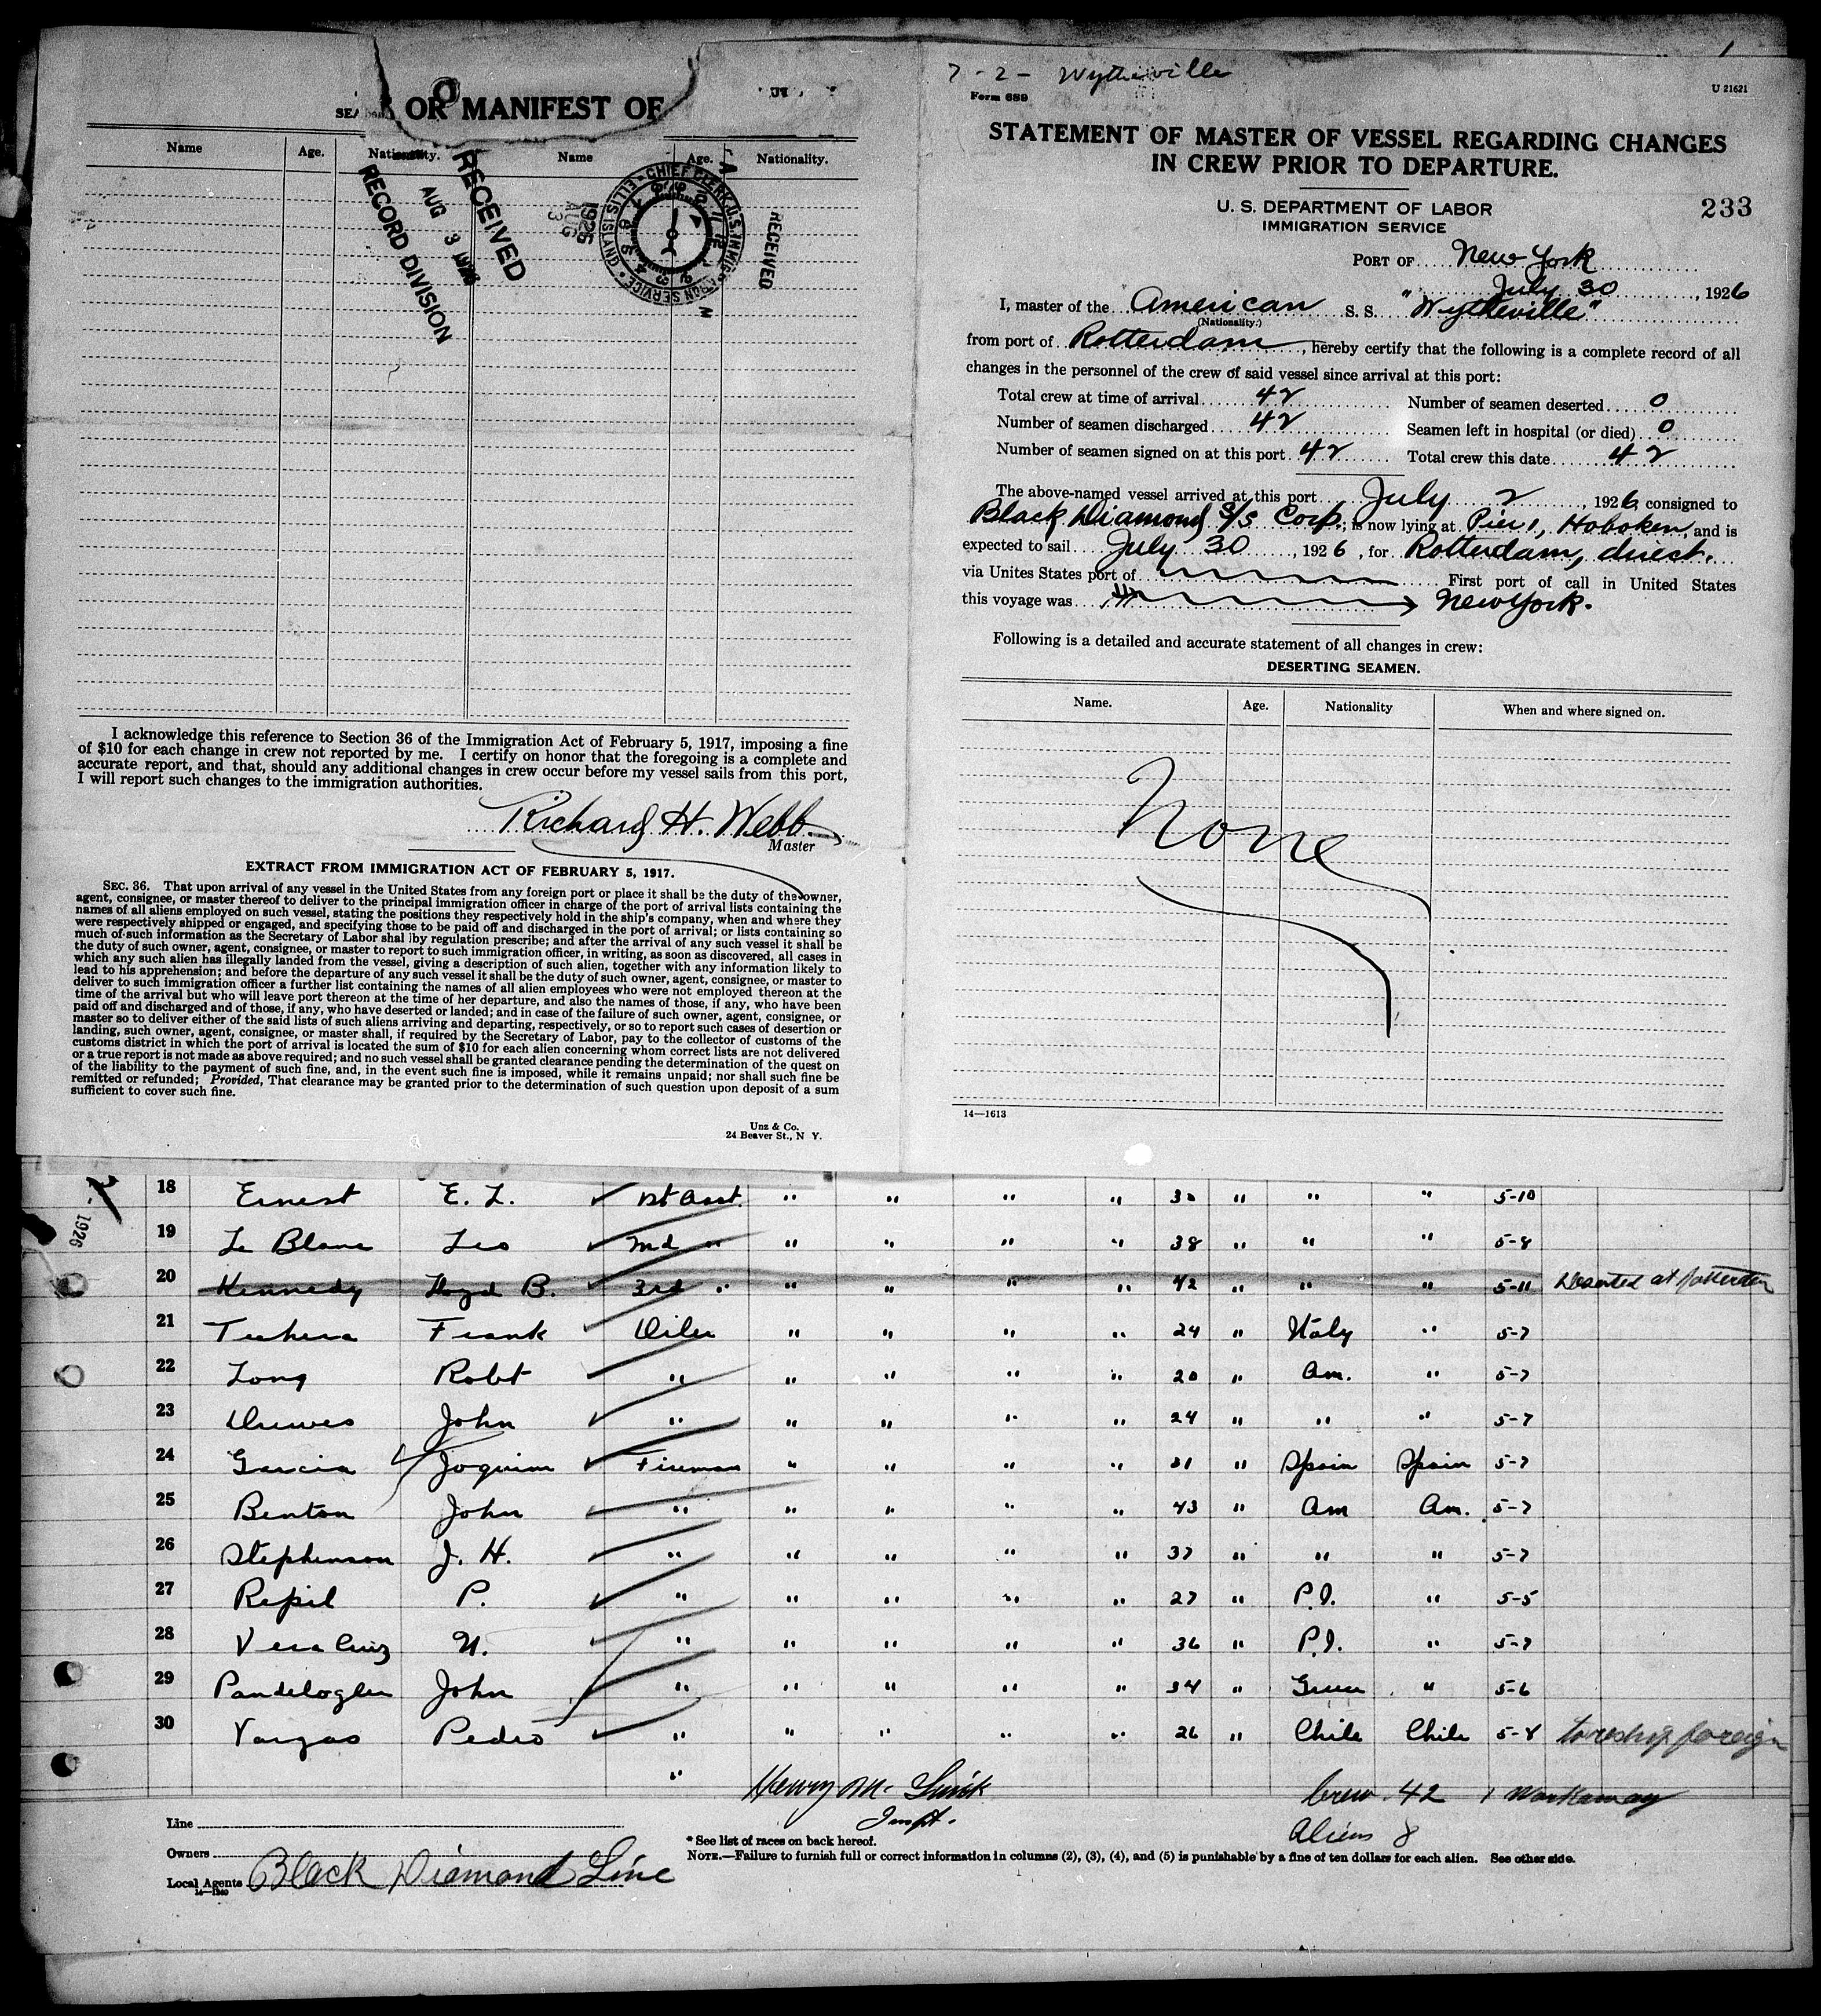 OR MANIFEST OF
Name Age. Nationality. Name Age. Nationality.
RECEIVED
AUG 3 1926
RECORD DIVISION
RECEIVED
1926 AUG 3
CHIEF CLERK, U.S. IMMIGRATION SERVICE ELLIS ISLAND
I acknowledge this reference to Section 36 of the Immigration Act of February 5, 1917, imposing a fine
of $10 for each change in crew not reported by me. I certify on honor that the foregoing is a complete and
accurate report, and that, should any additional changes in crew occur before my vessel sails from this port,
I will report such changes to the immigration authorities.
Richard H. Webb
Master
EXTRACT FROM IMMIGRATION ACT OF FEBRUARY 5, 1917.
SEC. 36. That upon arrival of any vessel in the United States from any foreign port or place it shall be the duty of the owner,
agent, consignee, or master thereof to deliver to the principal immigration officer in charge of the port of arrival lists containing the
names of all aliens employed on such vessel, stating the positions they respectively hold in the ship's company, when and where they
were respectively shipped or engaged, and specifying those to be paid off and discharged in the port of arrival; or lists containing so
much of such information as the Secretary of Labor shal lby regulation prescribe; and after the arrival of any such vessel it shall be
the duty of such owner, agent, consignee, or master to report to such immigration officer, in writing, as soon as discovered, all cases in
which any such alien has illegally landed from the vessel, giving a description of such alien, together with any information likely to
lead to his apprehension; and before the departure of any such vessel it shall be the duty of such owner, agent, consignee, or master to
deliver to such immigration officer a further list containing the names of all alien employees who were not employed thereon at the
time of the arrival but who will leave port thereon at the time of her departure, and also the names of those, if any, who have been
paid off and discharged and of those, if any, who have deserted or landed; and in case of the failure of such owner, agent, consignee, or
master so to deliver either of the said lists of such aliens arriving and departing, respectively, or so to report such cases of desertion or
landing, such owner, agent, consignee, or master shall, if required by the Secretary of Labor, pay to the collector of customs of the
customs district in which the port of arrival is located the sum of $10 for each alien concerning whom correct lists are not delivered
or a true report is not made as above required; and no such vessel shall be granted clearance pending the determination of the quest on
of the liability to the payment of such fine, and, in the event such fine is imposed, while it remains unpaid; nor shall such fine be
remitted or refunded; Provided, That clearance may be granted prior to the determination of such question upon deposit of a sum
sufficient to cover such fine.
Unz & Co.
24 Beaver St., N Y.
7 - 2 - Wytheville
Form 689
U 21621
STATEMENT OF MASTER OF VESSEL REGARDING CHANGES
IN CREW PRIOR TO DEPARTURE.
U. S. DEPARTMENT OF LABOR
IMMIGRATION SERVICE
233
PORT OF New York
July 30, 1926
I, master of the American S. S. "Wytheville"
(Nationality.)
from port of Rotterdam, hereby certify that the following is a complete record of all
changes in the personnel of the crew of said vessel since arrival at this port:
Total crew at time of arrival 42 Number of seamen deserted 0
Number of seamen discharged 42 Seamen left in hospital (or died) 0
Number of seamen signed on at this port 42 Total crew this date 42
The above-named vessel arrived at this port July 2, 1926, consigned to
Black Diamond S/S Corp.; is now lying at Pier 1, Hoboken, and is
expected to sail July 30, 1926, for Rotterdam, direct.
via Unites States port of First port of call in United States
this voyage was New York.
Following is a detailed and accurate statement of all changes in crew:
DESERTING SEAMEN.
Name. Age. Nationality When and where signed on.
None
14—1613
1926
18 Ernest E. L. 1st Asst. " " " " 30 " " " 5-10
19 Le Blanc Leo 2nd " " " " " 38 " " " 5-8
20 Kennedy Lloyd B. 3rd " " " " " 42 " " " 5-11 Deserted at Rotterdam
21 Frank Oiler " " " " 24 " Italy " 5-7
22 Long Robt " " " " " 20 " Am. " 5-7
23 Drewes John " " " " " 24 " " " 5-7
24 Garcia Joquim Fireman " " " " 31 " Spain Spain 5-7
25 Benton John " " " " " 43 " Am Am. 5-7
26 Stephenson J. H. " " " " " 37 " " " 5-7
27 Repil P. " " " " " 27 " P.I. " 5-5
28 Vera Cruz N. " " " " " 36 " P.I. " 5-7
29 John " " " " " 34 " Greece " 5-6
30 Vargas Pedro " " " " " 26 " Chile Chile 5-8 to reship foreign
" Henry M. Crew 42 1 Workaway
Inspt. Aliens 8
Line
* See list of races on back hereof.
Owners
NOTE.—Failure to furnish full or correct information in columns (2), (3), (4), and (5) is punishable by a fine of ten dollars for each alien. See other side.
Local Agents Black Diamond Line
14—1240